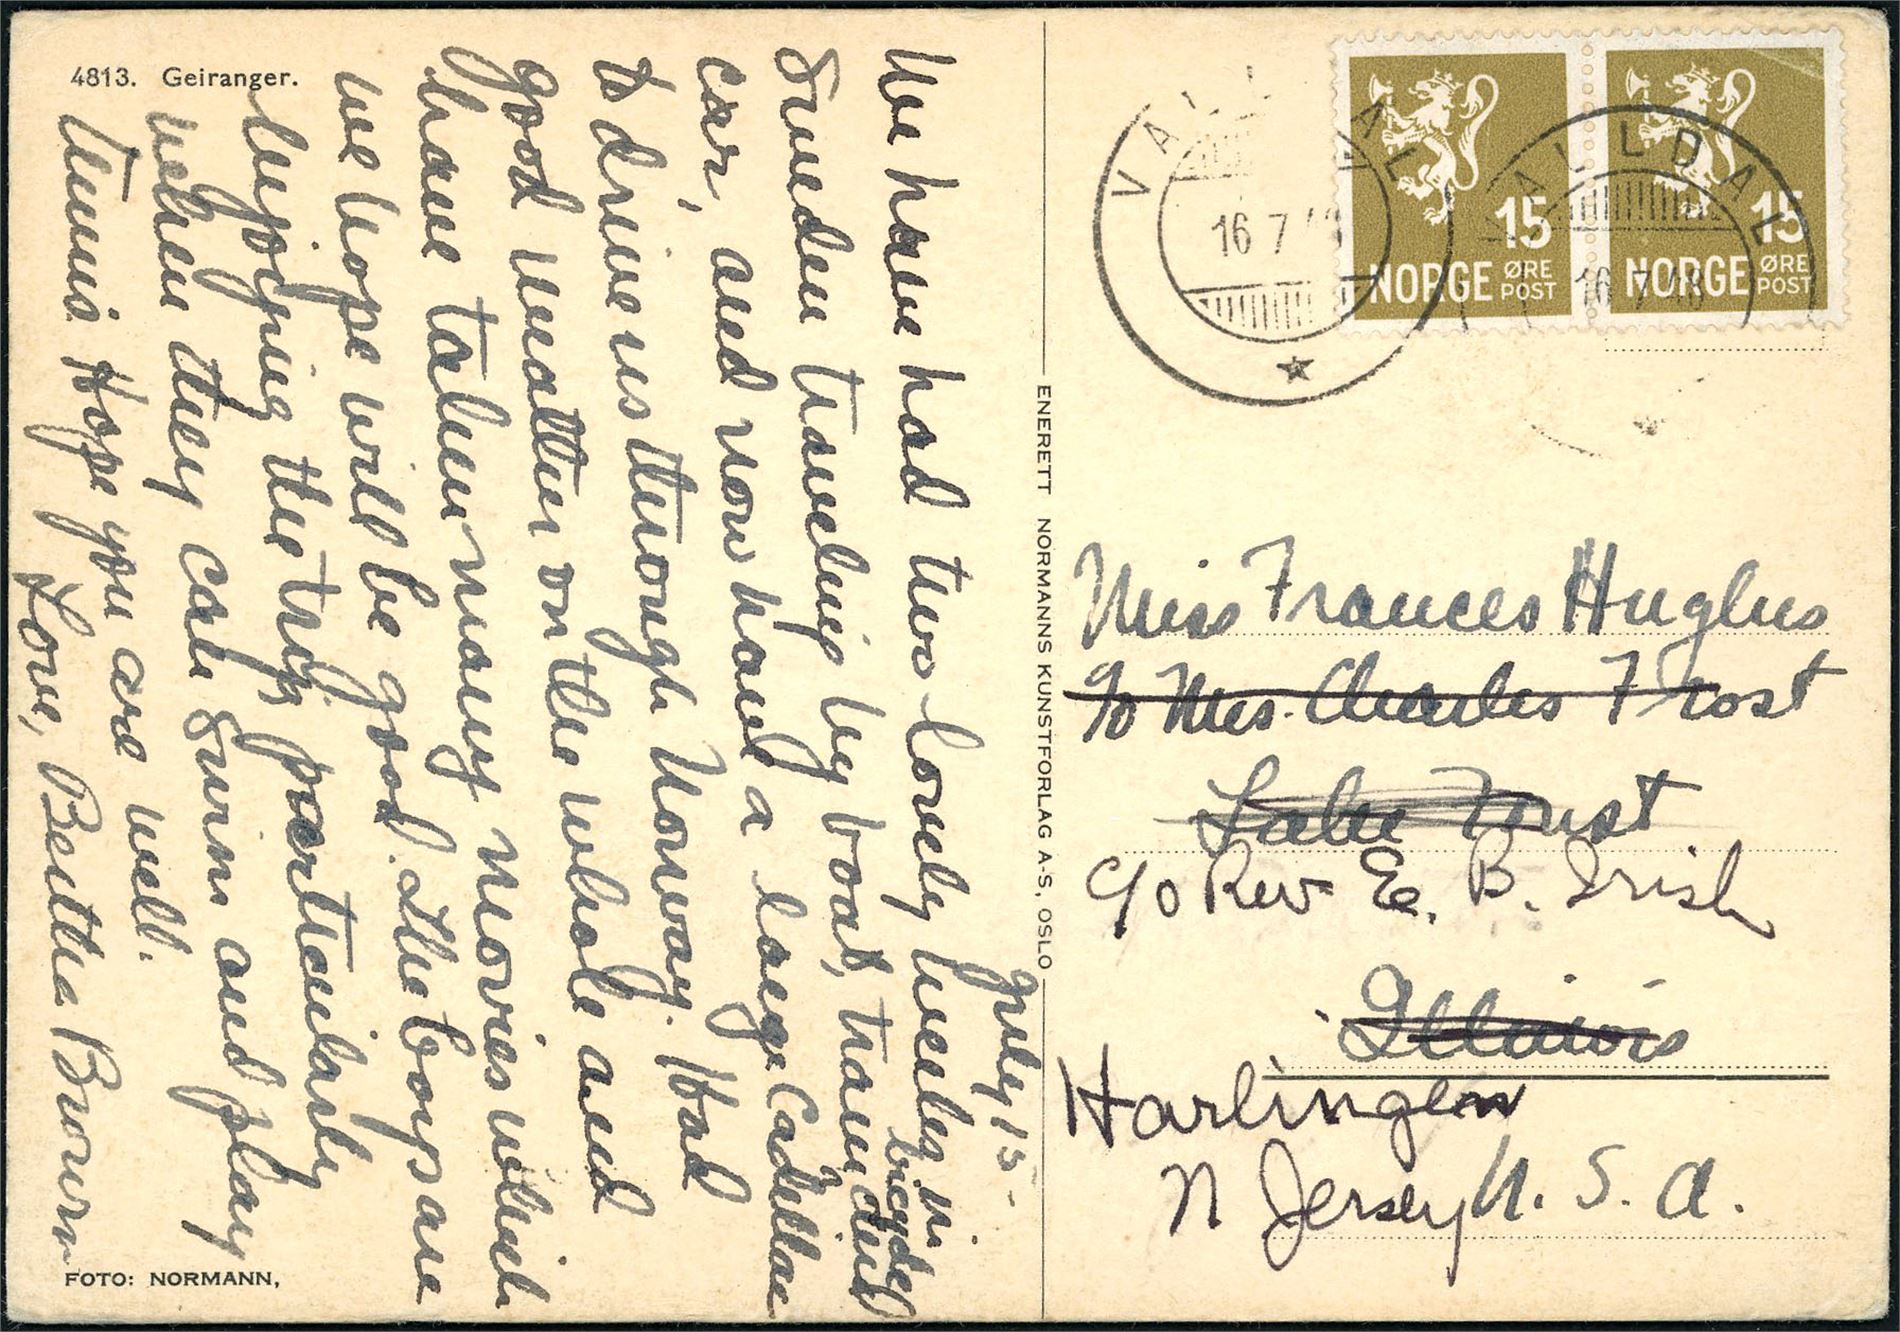 4813. Geiranger.
July 15 -
We have had two lovely weeks in
Sweden traveling by boat, train and bicycle
car, and now have a large Cadillac
to drive us through Norway. Had
good weather on the whole and
have taken many movies which
we hope will be good. The boys are
enjoying the trip particularly
when they can swim and play
tennis. Hope you are well.
Love, Beutha Brown
FOTO: NORMANN,
ENERETT NORMANNS KUNSTFORLAG A-S, OSLO
VALLDAL
16 7 48
VALLDAL
16 7 48
15
NORGE ØRE POST
15
NORGE ØRE POST
Miss Frances Hughes
c/o Mrs. Charles Frost
Lake Forest
c/o Rev E. B. Irish
Illinois
Harlingen
N Jersey U. S. A.